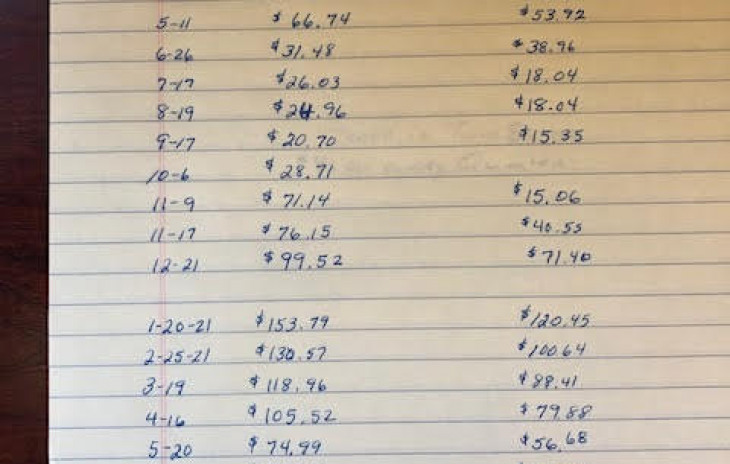 5-11 $66.74 $53.92
6-26 $31.48 $38.96
7-17 $26.03 $18.04
8-19 $24.96 $18.04
9-17 $20.70 $15.35
10-6 $28.71
11-9 $71.14 $15.06
11-17 $76.15 $40.55
12-21 $99.52 $71.40
1-20-21 $153.79 $120.45
2-25-21 $130.57 $100.64
3-19 $118.96 $88.41
4-16 $105.52 $79.88
5-20 $74.99 $56.68